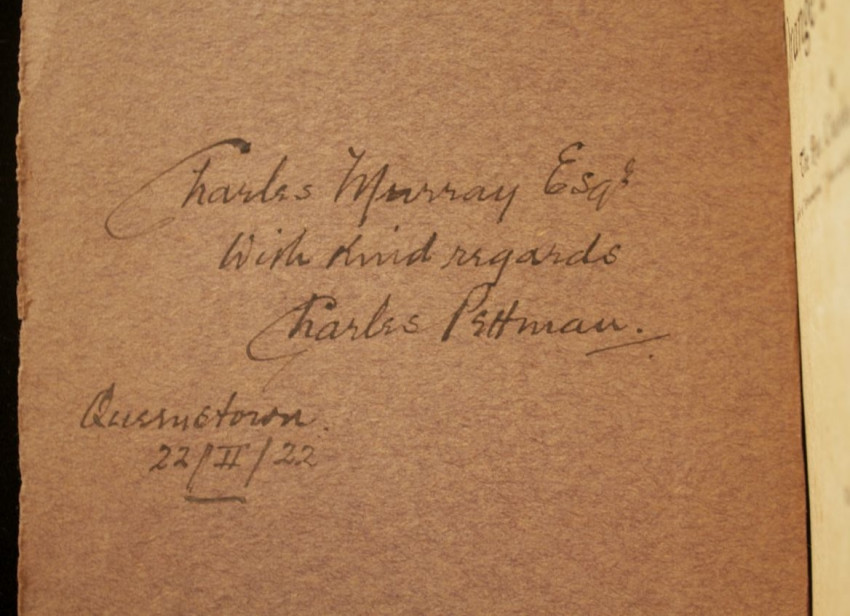 Charles Murray Esqr
With kind regards
Charles Pettman.
Queenstown.
22/II/22